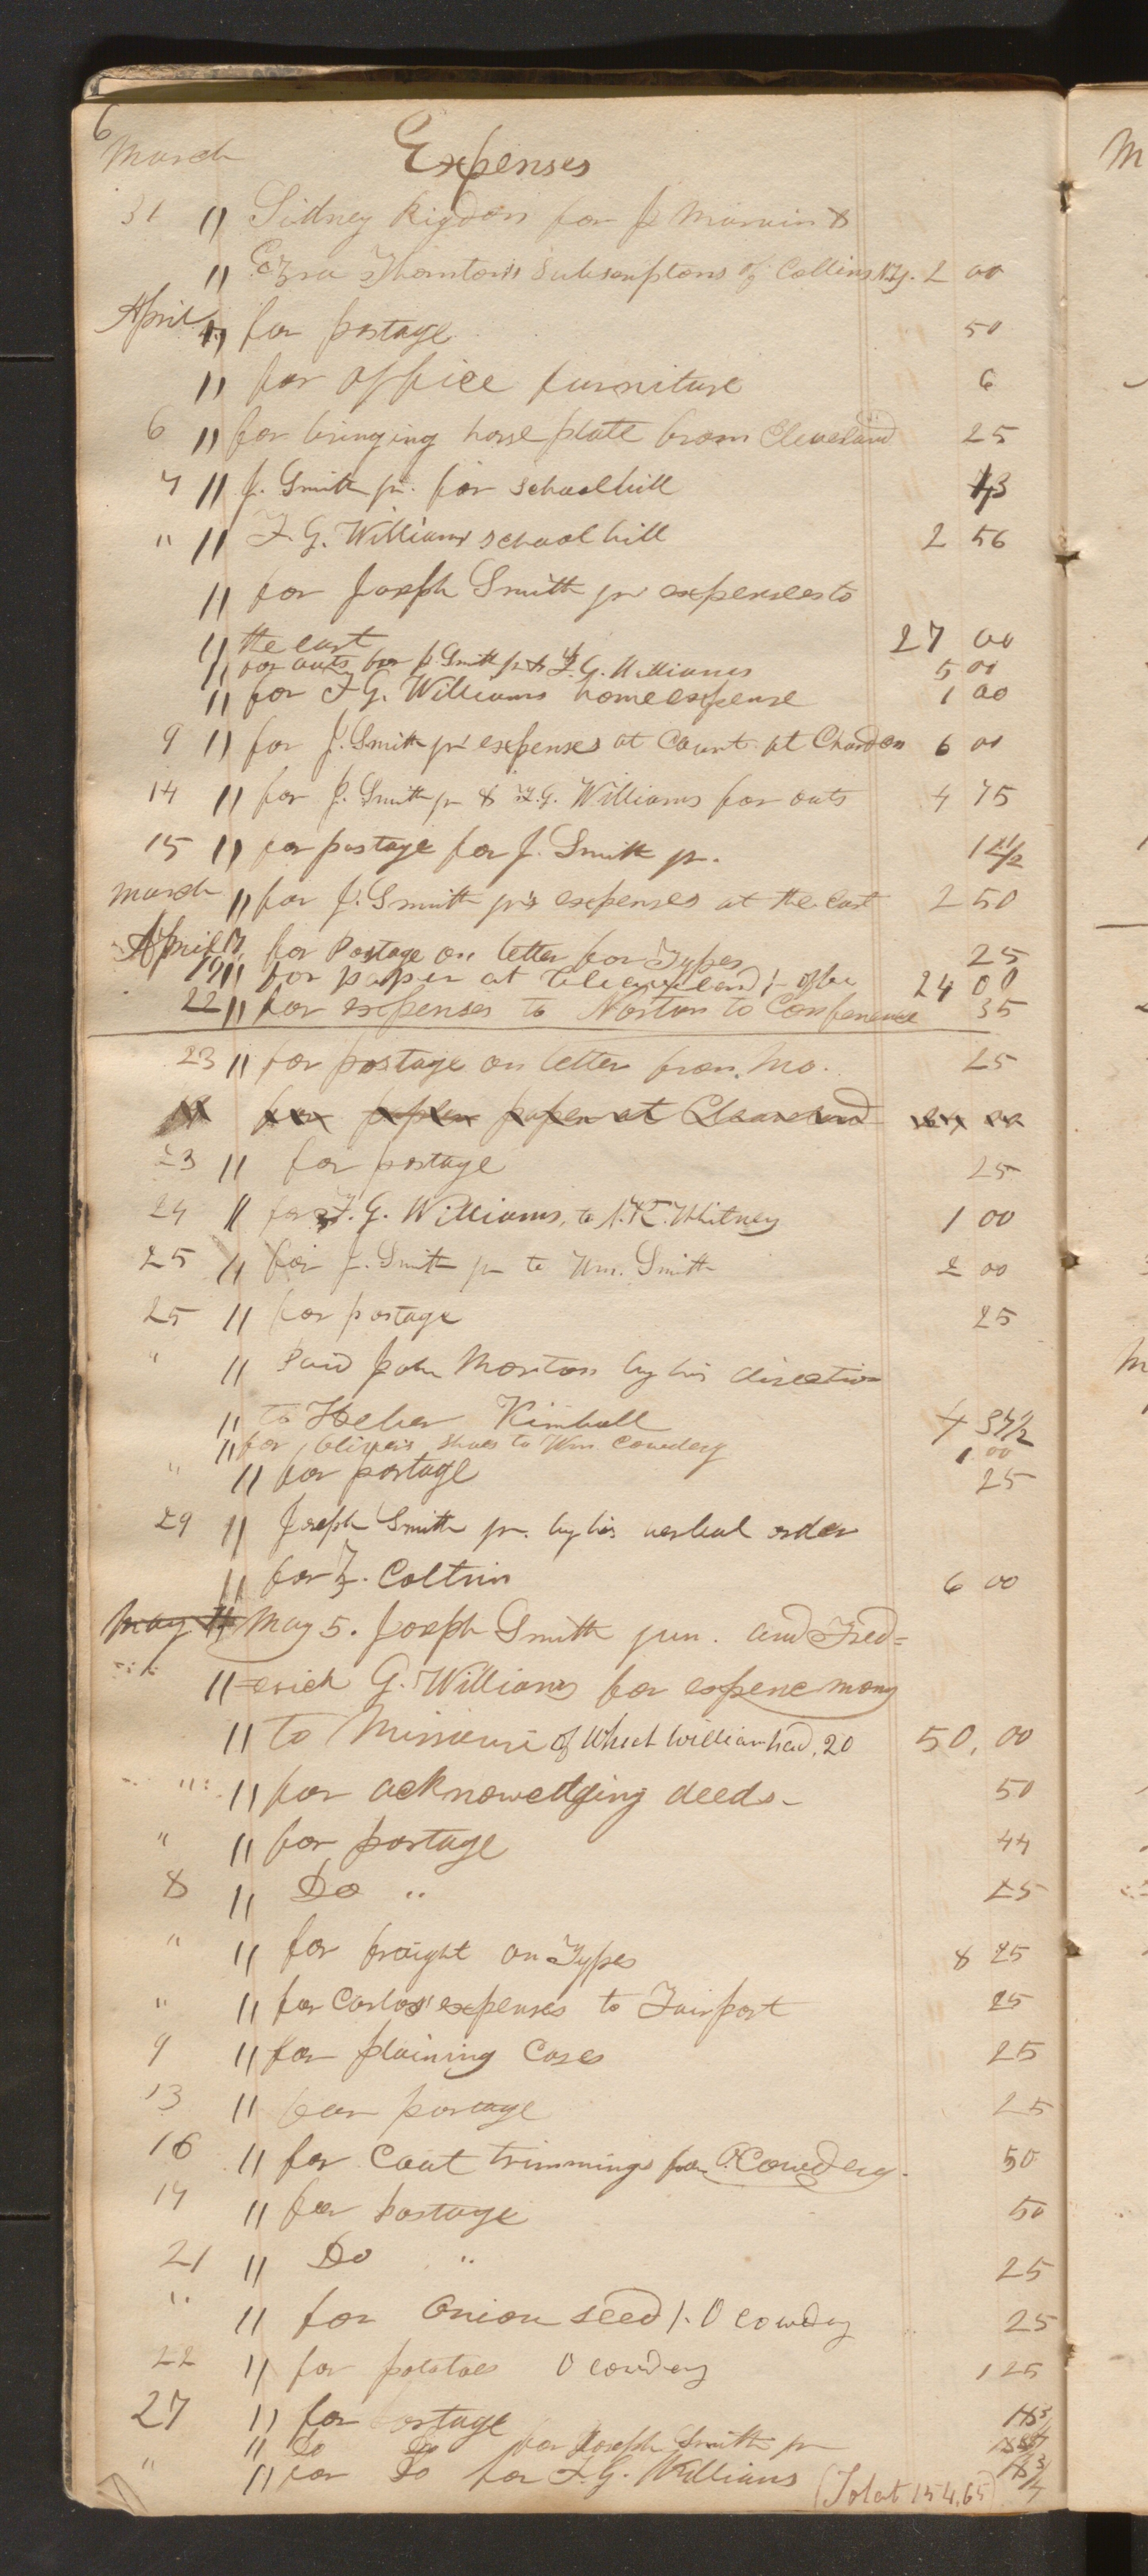 6
March Expenses
31 " Sidney Rigdon for J. Marvin &
" Ezra Thornton's Subscriptons of Collins N.Y. 2 00
April " for postage 50
" for office furniture 6
6 " for bringing horse plate from Cleveland 25
7 " J. Smith jr. for school bill 73
" " F. G. Williams school bill 2 56
" for Joseph Smith jr expenses to
" the east 27 00
" for outs for J. Smith jr & F. G. Williams 5 00
" for F G. Williams home expense 1 00
9 " for J. Smith jr expenses at Court at Chardon 6 00
14 " for J. Smith jr & F. G. Williams for outs 4 75
15 " for postage for J. Smith jr.
March " for J. Smith jr's expenses at the east 2 50
April 17 for Postage on letter for Types 25
19 " for paper at Cleaveland 24 00
22 " for expenses to Norton to Conference 35
23 " for postage on letter from Mo. 25
for paper at Cleaveland 24 00
23 " for postage 25
24 " for F. G. Williams, to N. K. Whitney 1 00
25 " for J. Smith jr to Wm. Smith 2 00
25 " for postage 25
" " Paid John Morton by his direction
" to Heber Kimball 4 37½
" for Oliver's shoes to Wm Cowdery 1 00
" " for postage 25
29 " Joseph Smith jr. by his verbal order
" for Z. Coltrin 6 00
May " May 5. Joseph Smith jun. and Fred=
" =erick G. Williams for expence mony
" to Missouri of Which William had, 20 50,00
" " for acknowedging deeds- 50
" " for postage 44
8 " Do " 25
" " for fraight on Types 8 25
" " for Carlos' expenses to Fairport 25
9 " for plaining Cases 25
13 " for postage 25
16 " for Coat trimmings for O. Cowdery. 50
17 " for postage 50
21 " Do " 25
" " for Onion seed /. O cowdery 25
22 " for potatoes O cowdery 1 25
27 " for postage 18¾
" Do Do for Joseph Smith jr
" " for Do for F. G. Williams 18¾
(Tolat 154,65)